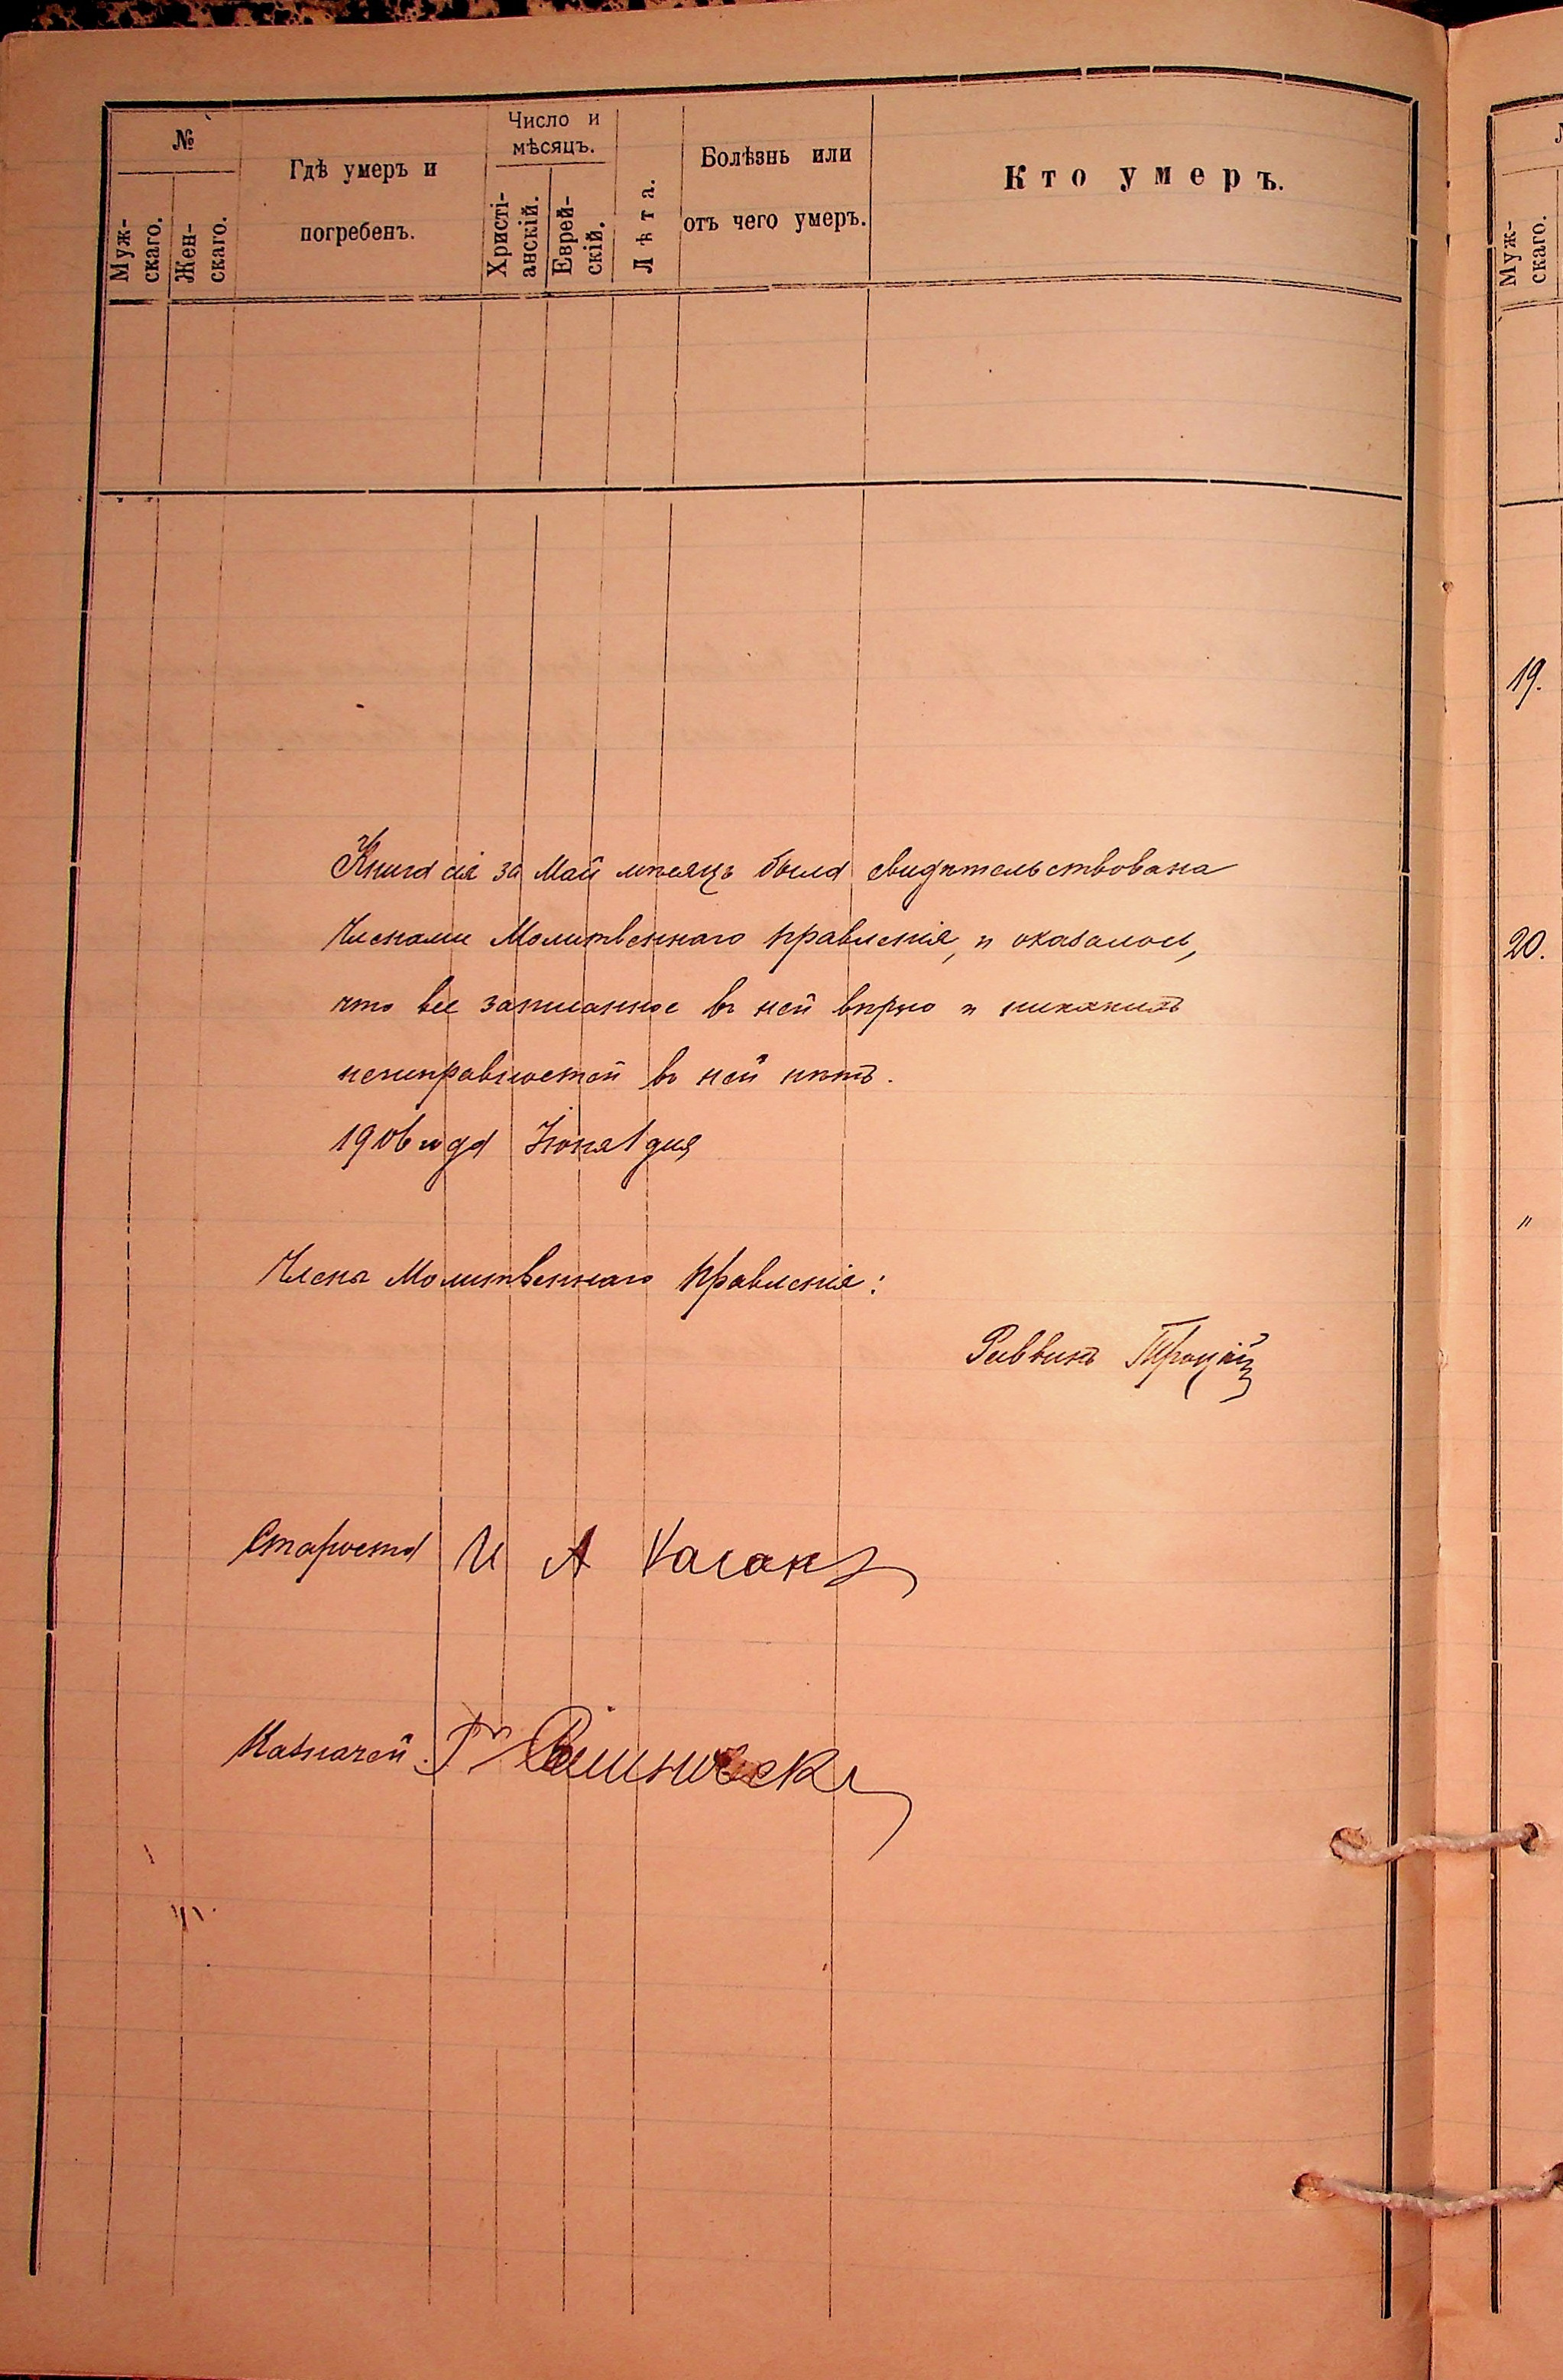 №
Муж-
скаго.
Жен-
скаго.
Гдѣ умеръ и
погребенъ.
Число и
мѣсяцъ.
Христі-
анскій.
Еврей-
скій.
Лѣта.
Болѣзнь или
отъ чего умеръ.
Кто умеръ.
Книга сія за Май мѣсяцъ была свидѣтельствована
Членами Молитвеннаго правленія, и оказалось,
что все записанное въ ней вѣрно и никакихъ
неисправностей въ ней нѣтъ.
1906 года Іюня 1 дня
Члены Молитвеннаго Правленія:
Раввинъ Троцкій
Староста И А Каганъ
Казначей Г
Муж-
скаго.
19.
20.
"